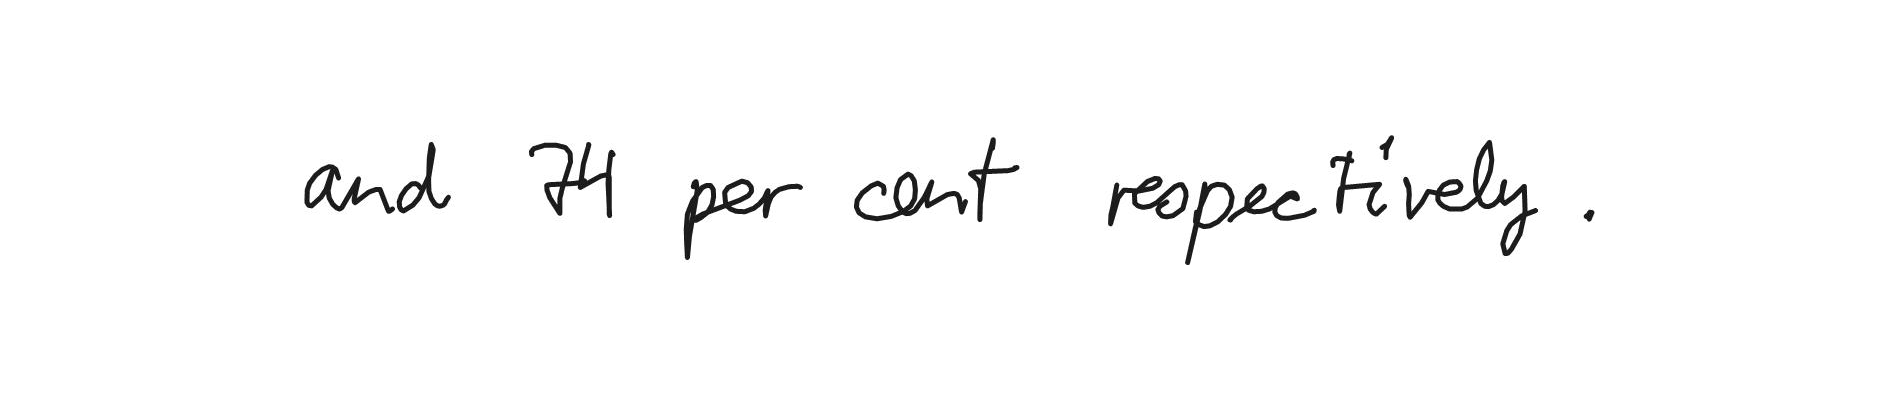 and 74 per cent respectively .